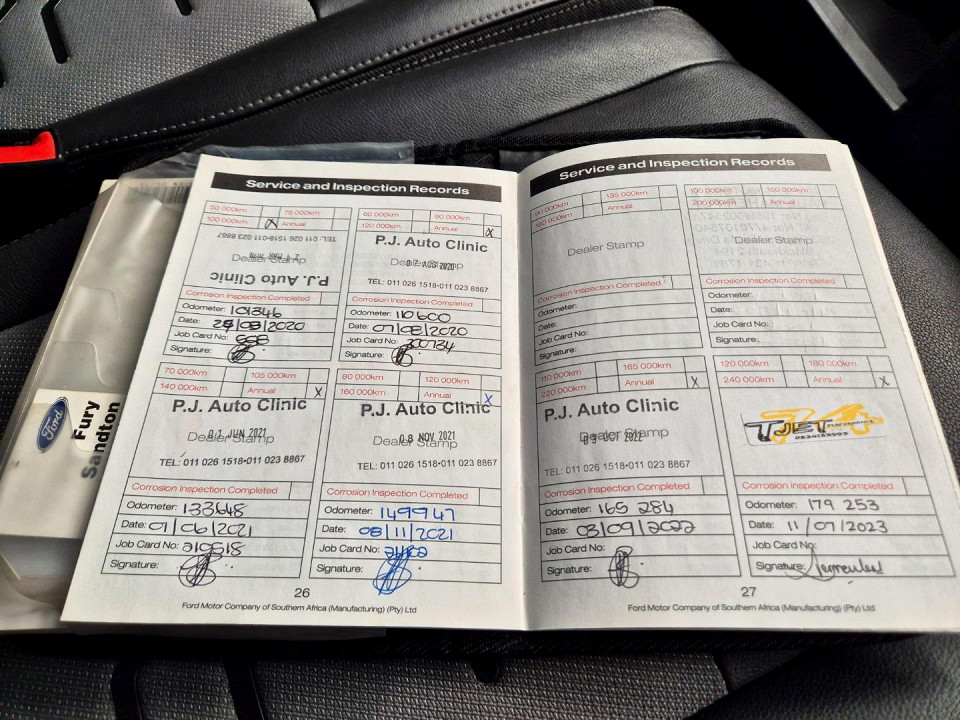 Service and Inspection Records
50 000km 75 000km
100 000km Annual X
TEL: 011 026 1518-011 023 8867
Dealer Stamp
P.J. Auto Clinic
Corrosion Inspection Completed
Odometer: 101346
Date: /2020
Job Card No:
Signature:
60 000km 90 000km
120 000km Annual X
P.J. Auto Clinic
Dealer Stamp
07 AUG 2020
TEL: 011 026 1518-011 023 8867
Corrosion Inspection Completed
Odometer: 110600
Date: 07/08/2020
Job Card No:
Signature:
70 000km 105 000km
140 000km Annual X
P.J. Auto Clinic
01 JUN 2021
Dealer Stamp
TEL: 011 026 1518-011 023 8867
Corrosion Inspection Completed
Odometer: 133648
Date: 01/06/2021
Job Card No: 219518
Signature:
80 000km 120 000km
160 000km Annual X
P.J. Auto Clinic
08 NOV 2021
Dealer Stamp
TEL: 011 026 1518-011 023 8867
Corrosion Inspection Completed
Odometer: 149947
Date: 08/11/2021
Job Card No:
Signature:
26
Ford Motor Company of Southern Africa (Manufacturing) (Pty) Ltd
Service and Inspection Records
90 000km 135 000km
180 000km Annual
Dealer Stamp
Corrosion Inspection Completed
Odometer:
Date:
Job Card No:
Signature:
100 000km 150 000km
200 000km Annual
Dealer Stamp
Corrosion Inspection Completed
Odometer:
Date:
Job Card No:
Signature:
110 000km 165 000km
220 000km Annual X
P.J. Auto Clinic
Dealer Stamp
TEL: 011 026 1518-011 023 8867
Corrosion Inspection Completed
Odometer: 165 284
Date: 03/09/2022
Job Card No:
Signature:
120 000km 180 000km
240 000km Annual X
TJET
Corrosion Inspection Completed
Odometer: 179 253
Date: 11/07/2023
Job Card No:
Signature:
27
Ford Motor Company of Southern Africa (Manufacturing) (Pty) Ltd
Ford
Fury
Sandton